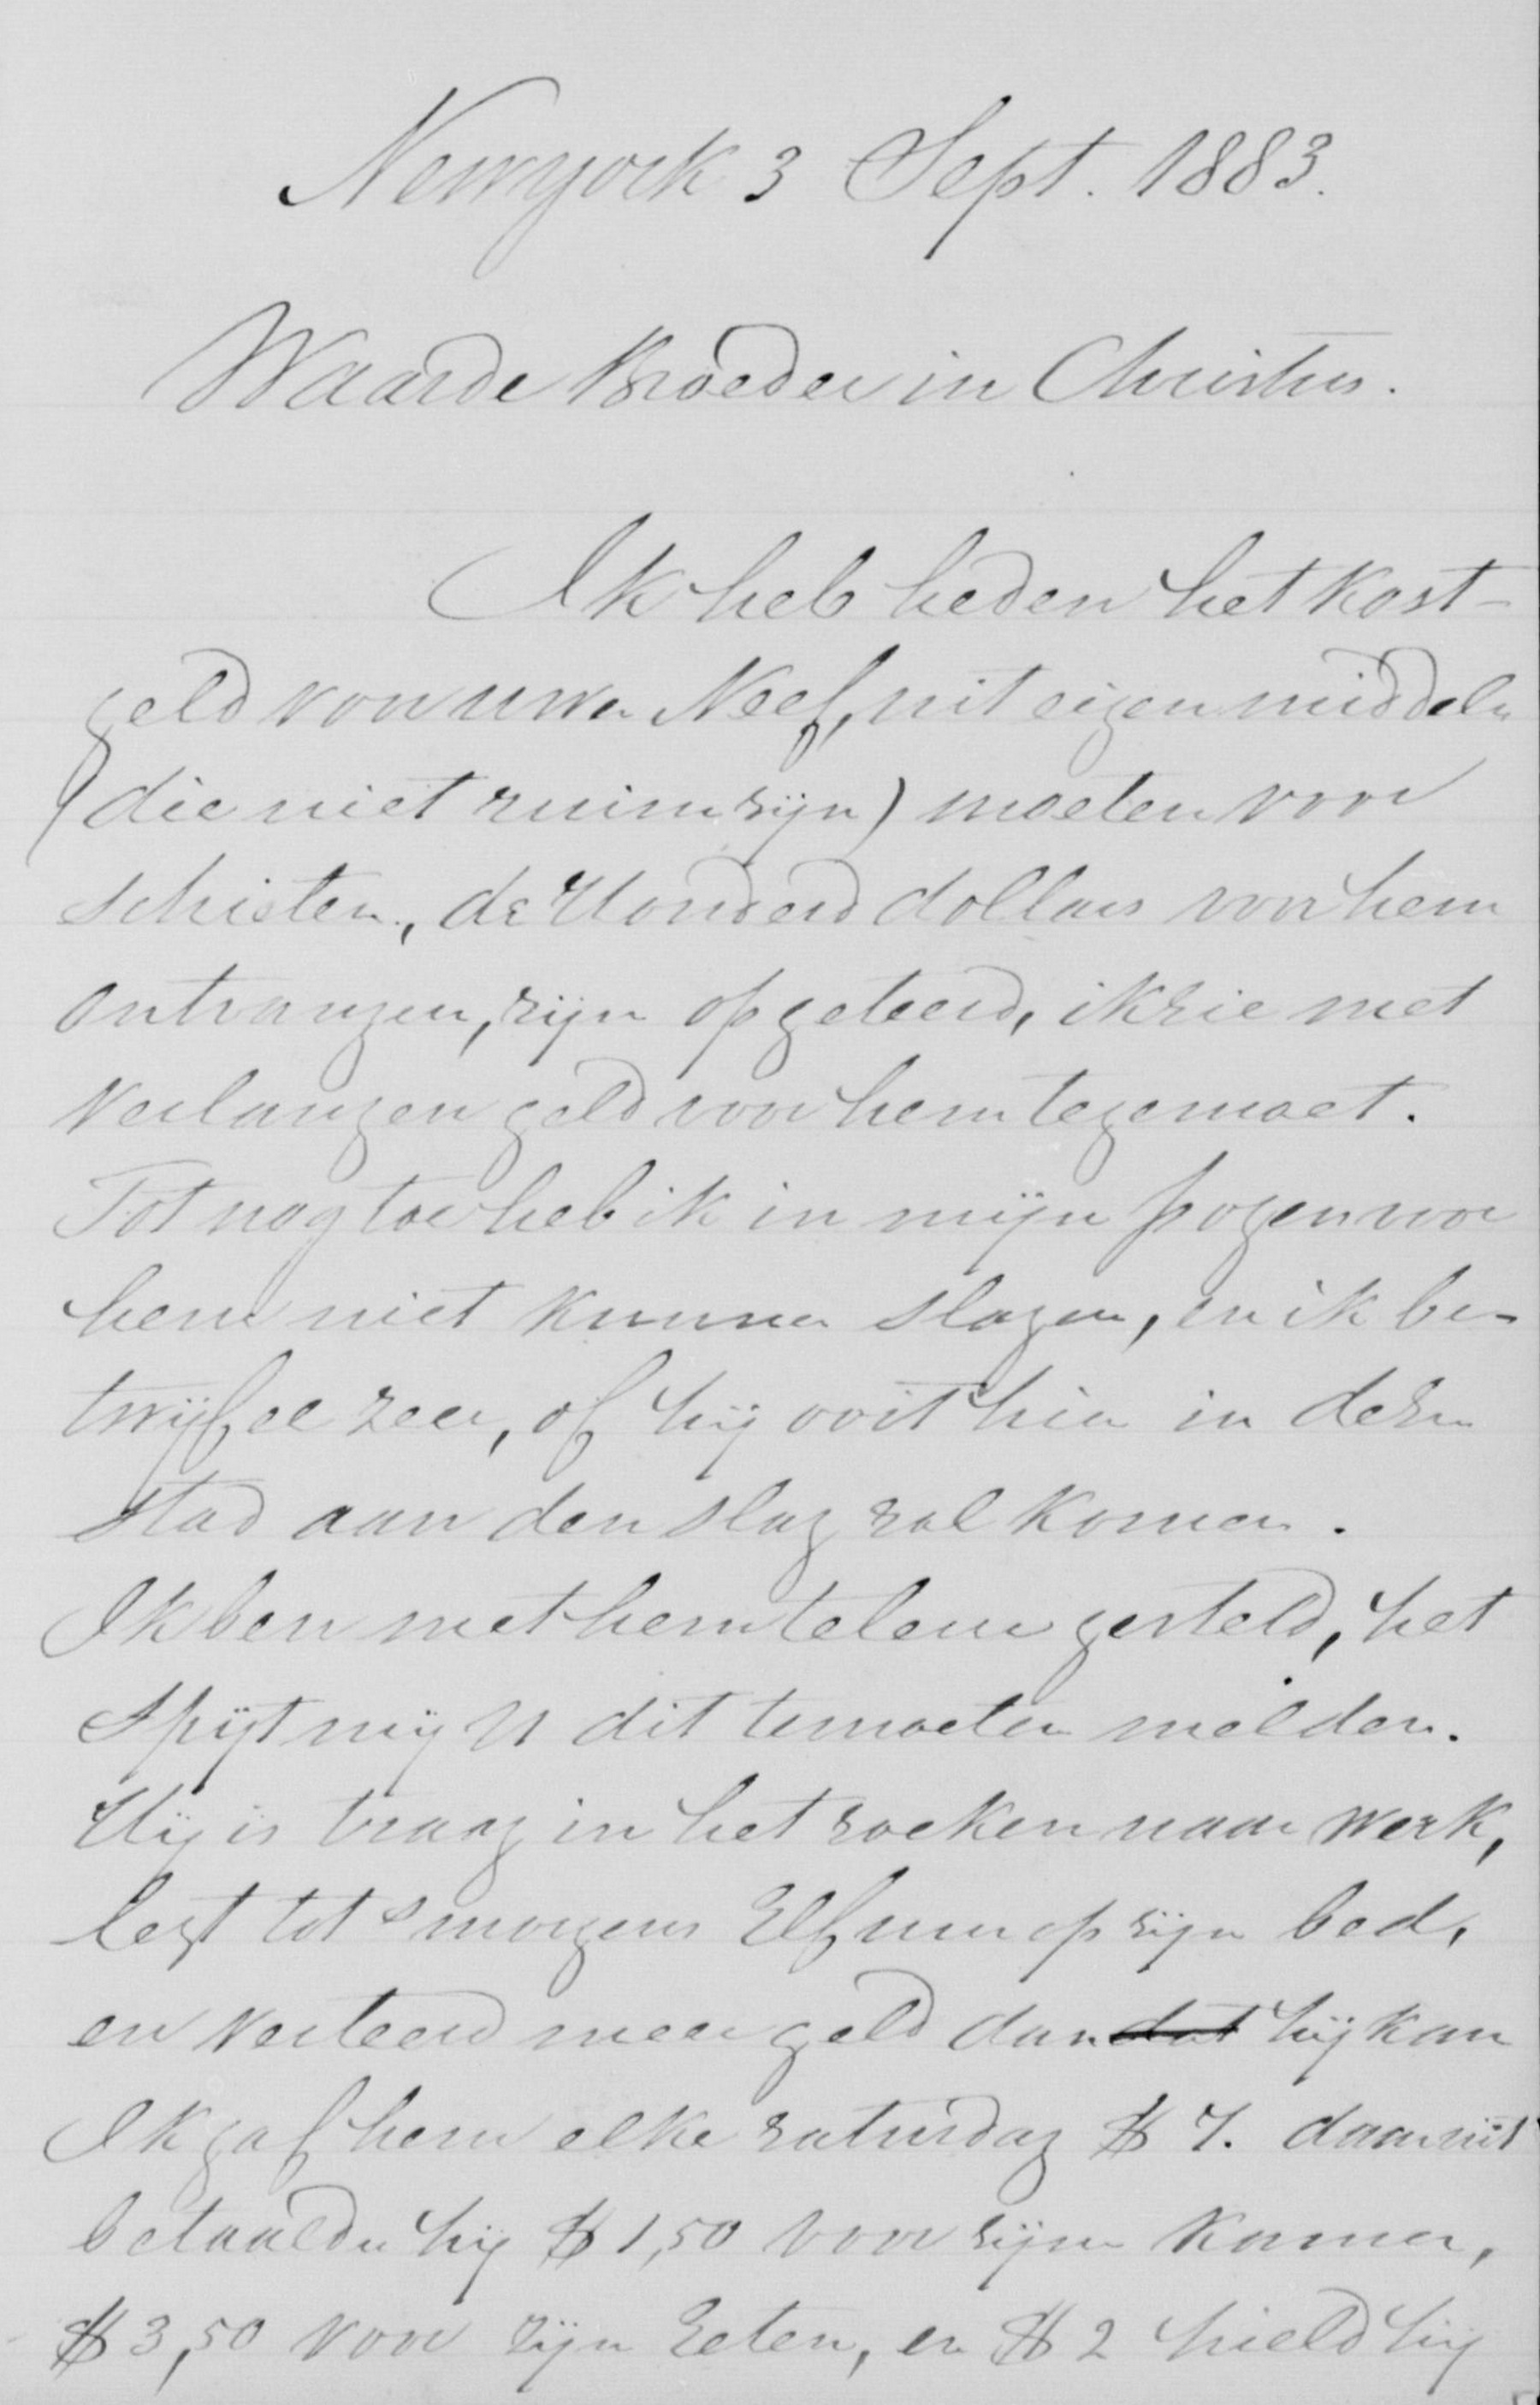 Newyork 3 Sept. 1883.
Waarde Broeder in Christus.
Ik heb heden het kost-
geld voor uwen Neef, uit eigen middeln
(die niet ruim zijn) moeten voor
schieten, de Honderd dollars voor hem
ontvangen, zijn opgeteerd, ik zie met
verlangen geld voor hem tegemoet.
Tot nog toe heb ik in mijn pogen voor
hem niet kunnen slagen, en ik be-
twijfel zeer, of hij ooit hier in dezen
stad aan den slag zal komen.
Ik ben met hem teleur gesteld, het
spijt mij U dit te moeten melden.
Hij is traag in het zoeken naar werk,
legt tot smorgens Elf uur op zijn bed,
en verteerd meer geld dan dat hij kan
Ik gaf hem elke zaturdag $ 7. daaruit
betaalde hij $ 1,50 voor zijn kamer,
$ 3,50 voor zijn Eeten, en $ 2 hield hij